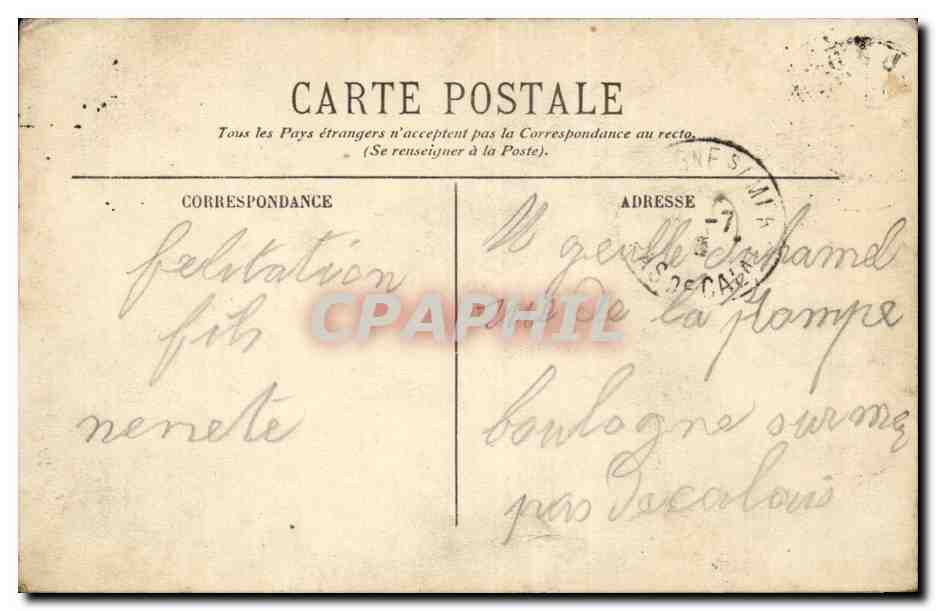 CARTE POSTALE
Tous les Pays étrangers n'acceptent pas la Correspondance au recto.
(Se renseigner à la Poste).
CORRESPONDANCE
ADRESSE
felitation
fils
neneте
M duhamel
rue de la Pompe
boulogne sur mer
pas de calais
-7
PAS DE CALAIS
CPAPHIL